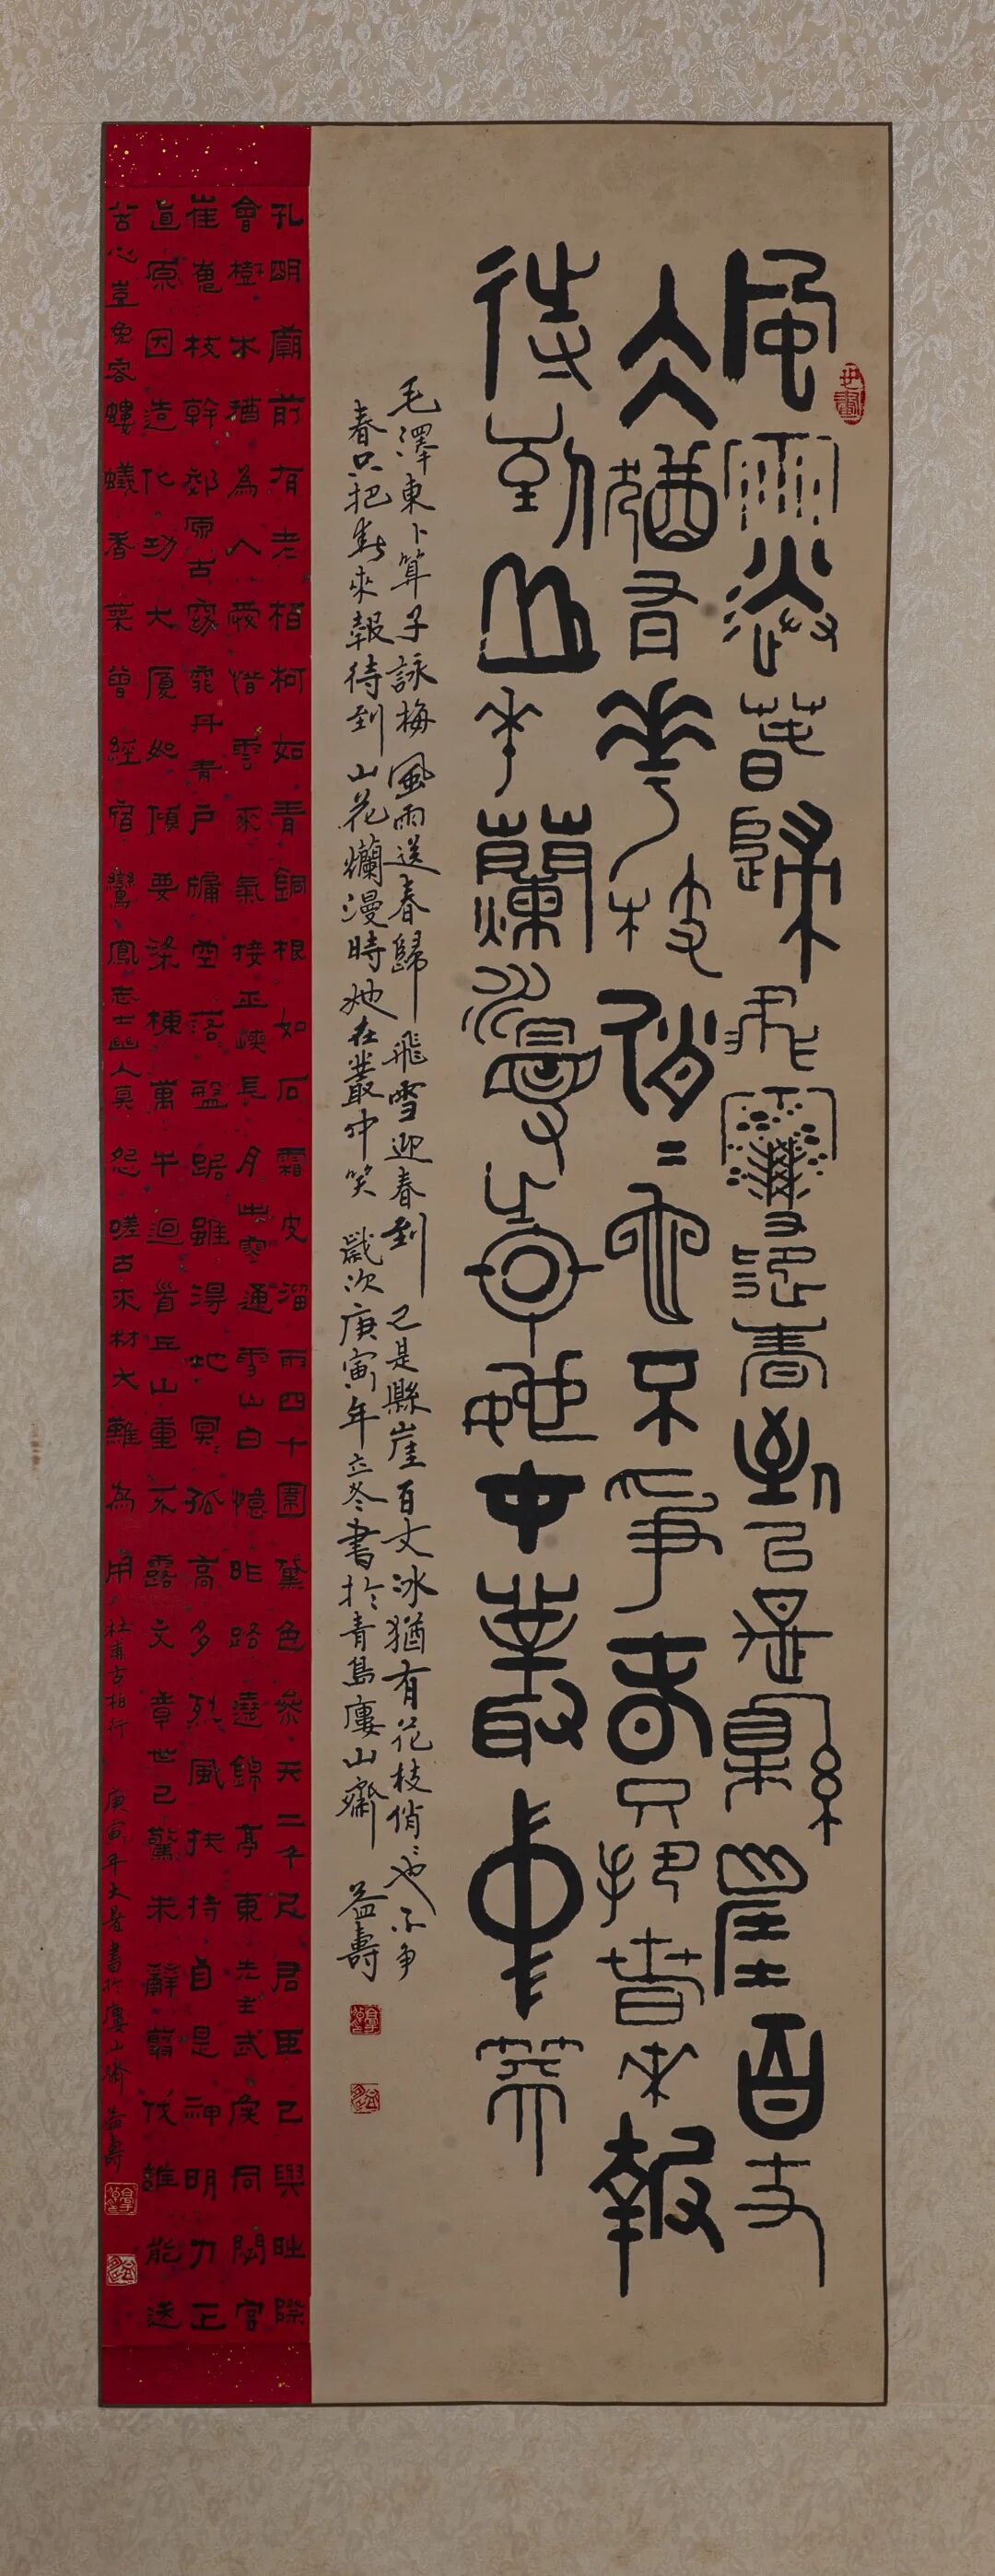 風雨送春歸飛雪迎春到已是縣崖百丈
冰猶有花枝俏〻也不爭春只把春來報
待到山花爛漫時她在叢中笑
毛澤東卜算子詠梅 風雨送春歸 飛雪迎春到 已是縣崖百丈冰猶有花枝俏〻也不爭
春只把春來報待到山花爛漫時她在叢中笑 歲次庚寅年立冬書於青島廔山齋 益壽
孔明廟前有老柏柯如青銅根如石霜皮溜雨四十圍黛色參天二千尺君臣已與時際
會樹木猶為人愛惜雲來氣接巫峽長月出寒通雪山白憶昨路遶錦亭東先主武侯同閟宮
崔嵬枝幹郊原古窈窕丹青戶牖空落〻盤踞雖得地冥〻孤高多烈風扶持自是神明力正
直原因造化功大廈如傾要梁棟萬牛迴首丘山重不露文章世已驚未辭翦伐誰能送
苦心豈免容螻蟻香葉曾經宿鸞鳳志士幽人莫怨嗟古來材大難為用 杜甫古柏行 庚寅年大暑書於廔山齋 益壽